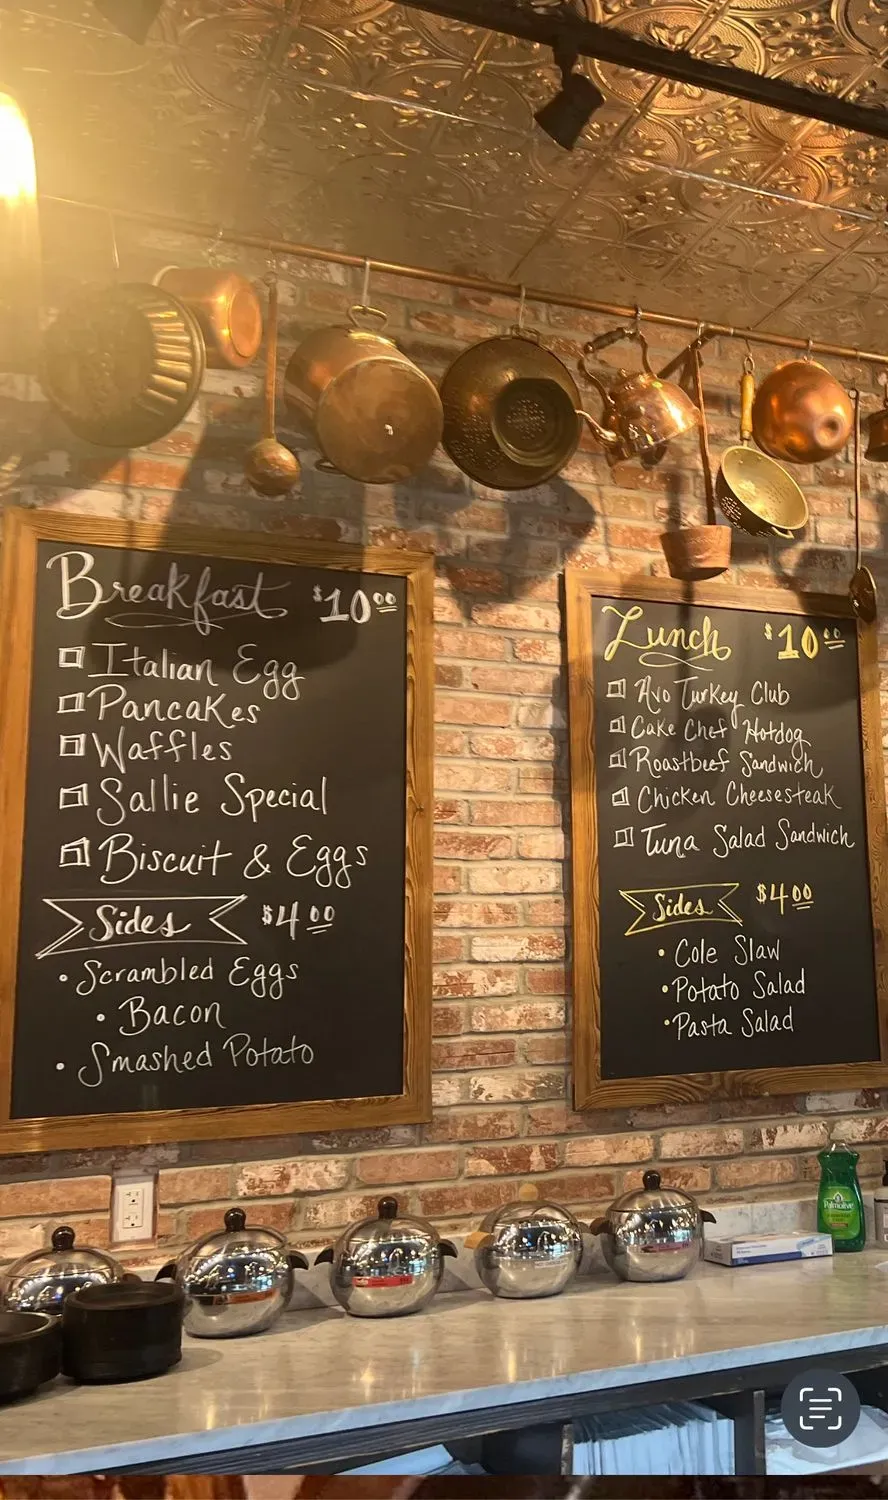 Breakfast $10.00
Italian Egg
Pancakes
Waffles
Sallie Special
Biscuit & Eggs
Sides $4.00
• Scrambled Eggs
• Bacon
• Smashed Potato
Lunch $10.00
Avo Turkey Club
Cake Chef Hotdog
Roastbeef Sandwich
Chicken Cheesesteak
Tuna Salad Sandwich
Sides $4.00
• Cole Slaw
• Potato Salad
• Pasta Salad
Palmolive